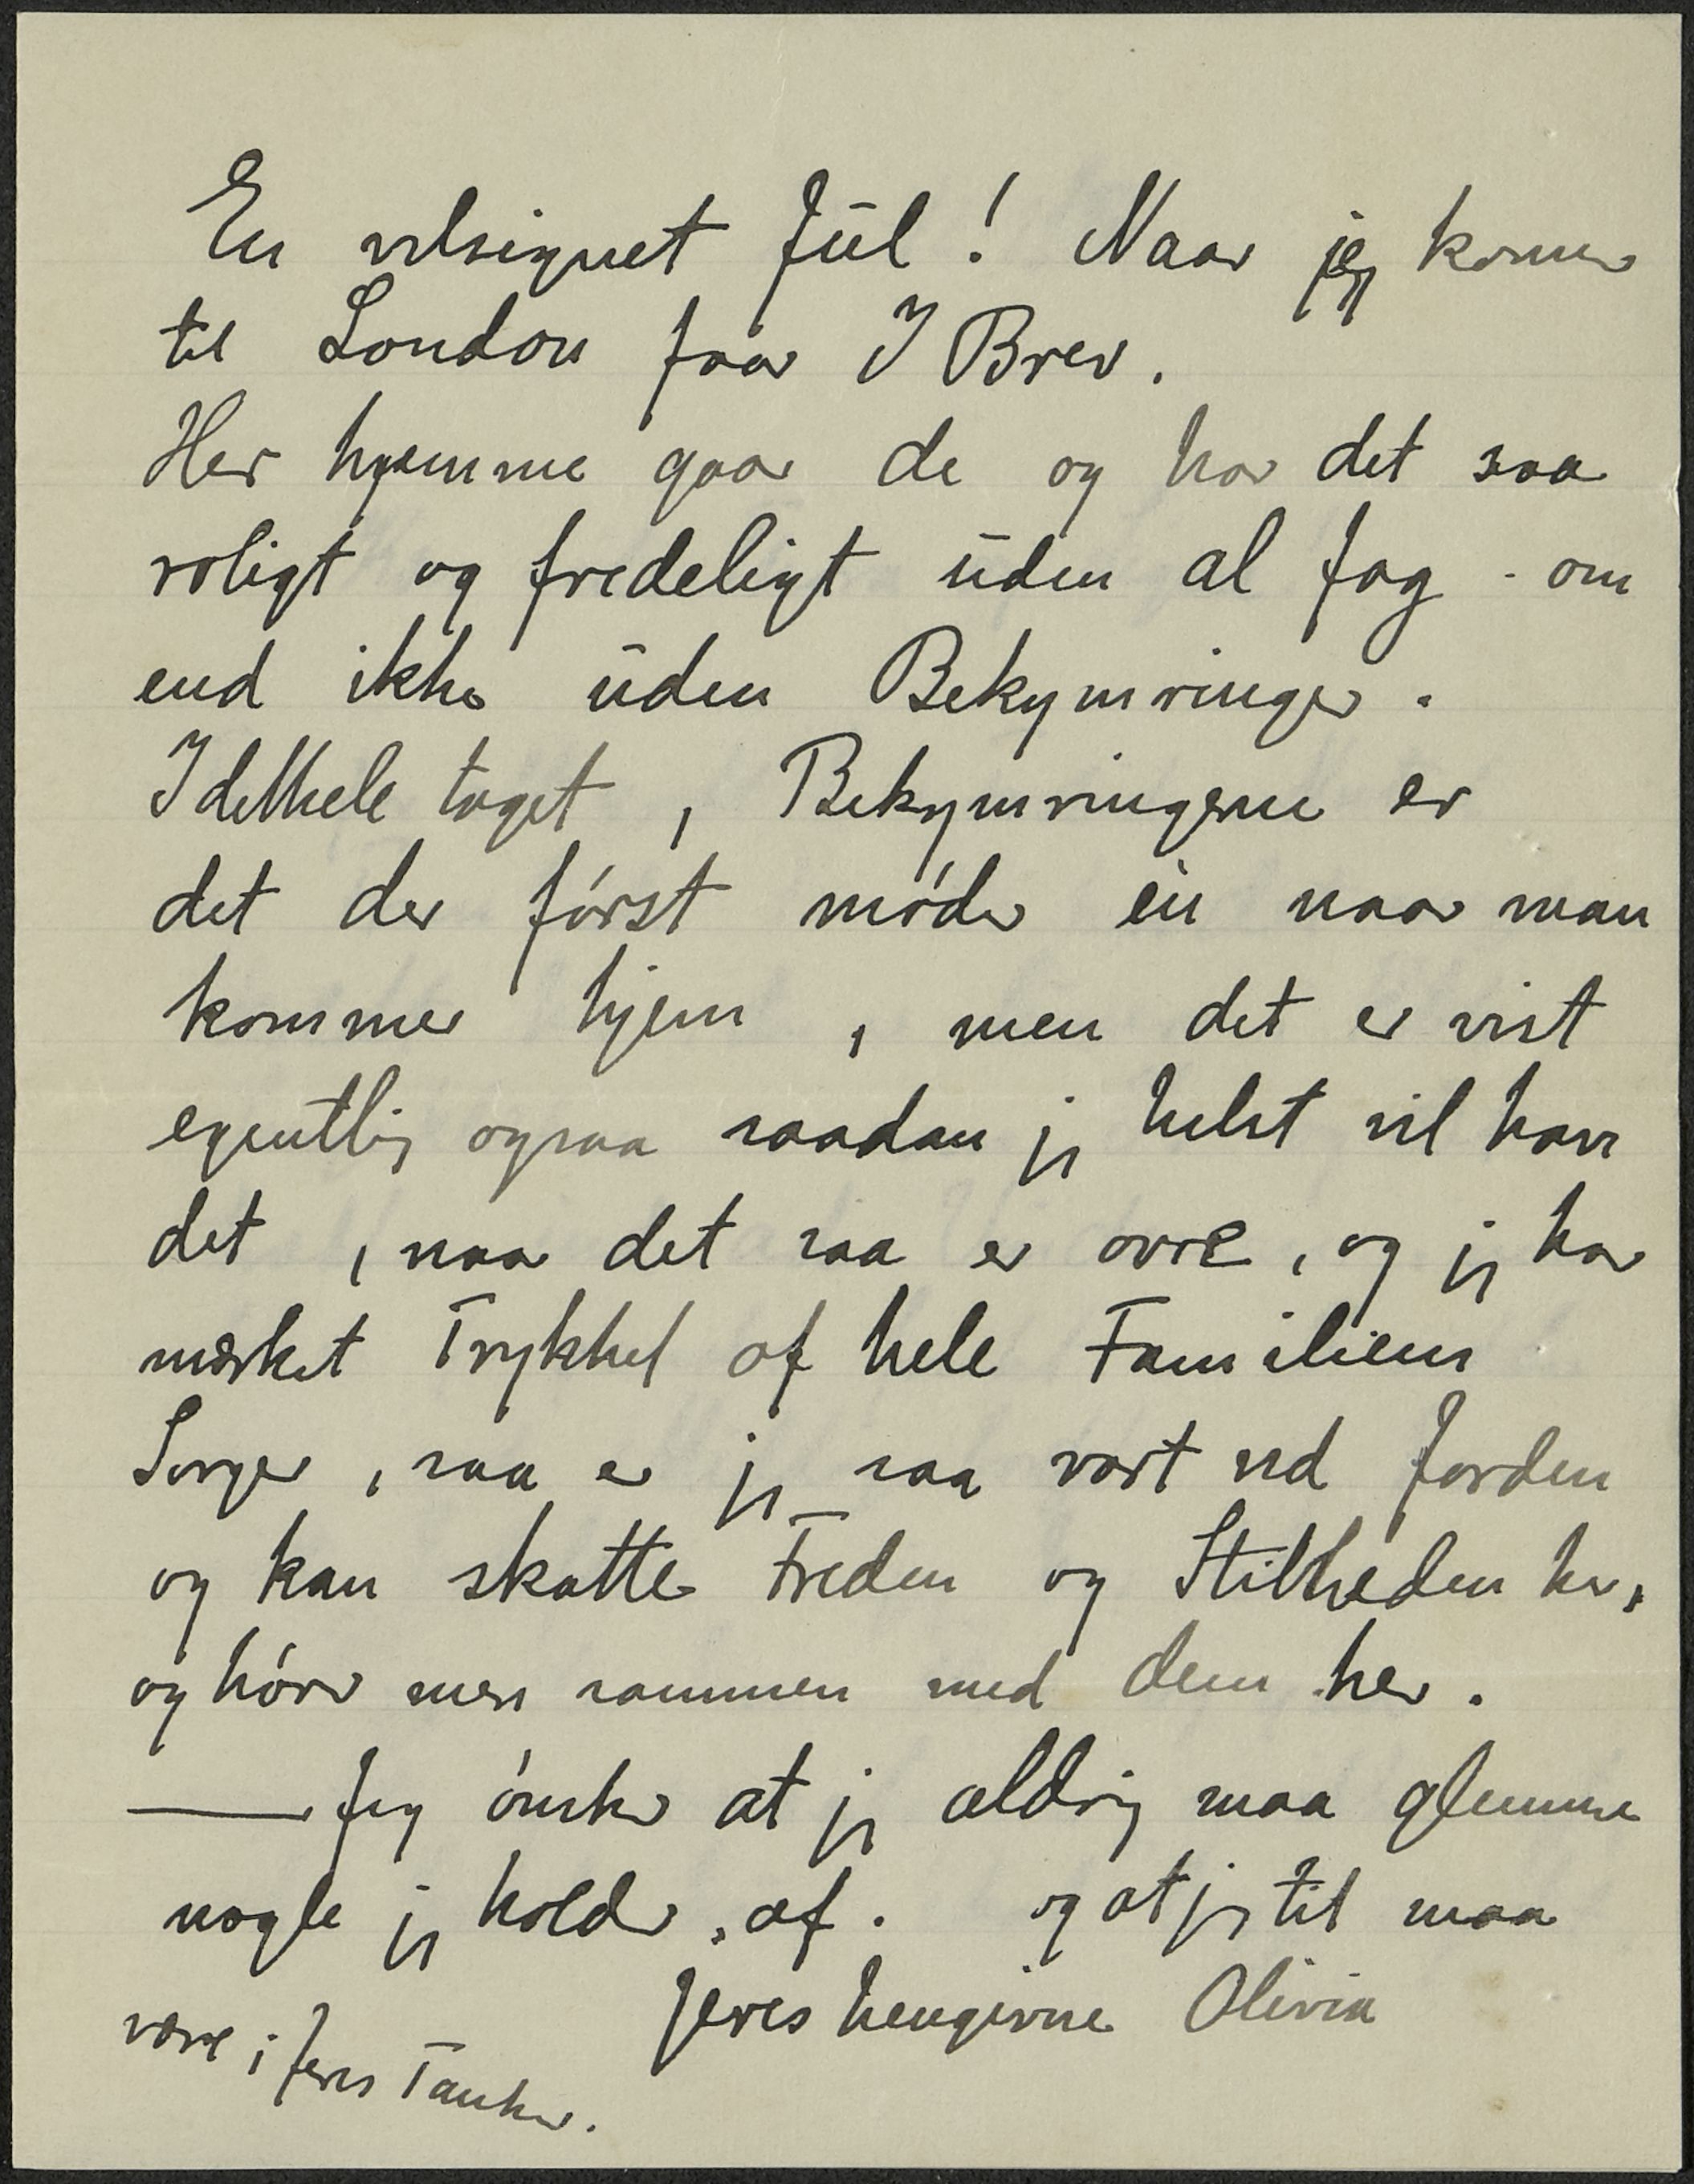 En velsignet Jul! Naar jeg kommer
til London faar I Brev.
Her hjemme gaar de og har det saa
roligt og fredeligt uden al Jag - om
end ikke uden Bekymringer.
I dethele taget, Bekymringerne er
det der først møder én naar man
kommer hjem, men det er vist
egentlig ogsaa saadan jeg helst vil have
det, naar det saa er ovre, og jeg har
mærket Trykket af hele Familiens
Sorger, saa er jeg saa vart ved Jorden
og kan skatte Freden og Stilheden her,
og hører mere sammen med dem her.
— Jeg ønsker at jeg aldrig maa glemme
nogle jeg holder af. og at jeg tit maa
være i Jeres Tanker.
Jeres hengivne Olivia